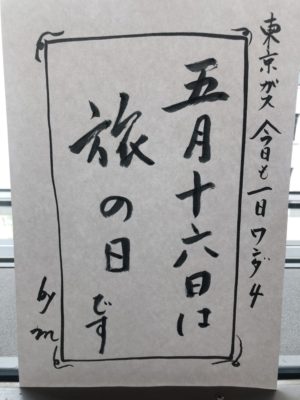 東京ガス 今日も一日ワンダ4
五月十六日は
旅の日です
by m